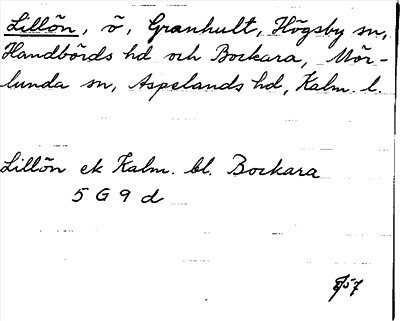 Lillön, ö, Granhult, Högsby sn,
Handbörds hd och Bockara, Mör-
lunda sn, Aspelands hd, Kalm. l.
Lillön ek Kalm. bl. Bockara
5 G 9 d